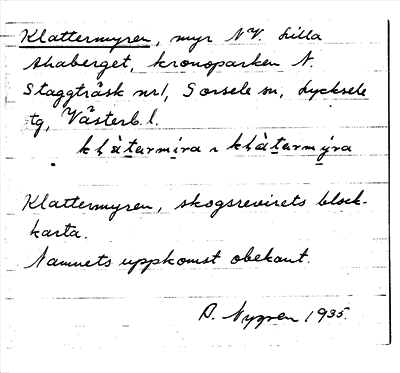 Klattermyren, myr NV. Lilla
Ahaberget, kronoparken N.
Staggträsk nr 1, Sorsele sn, Lycksele
tg, Västerb. l.
klàtarmíra ~ klàtarmýra
Klattermyren, skogsrevirets block-
karta.
Namnets uppkomst obekant.
D. Nygren 1935.